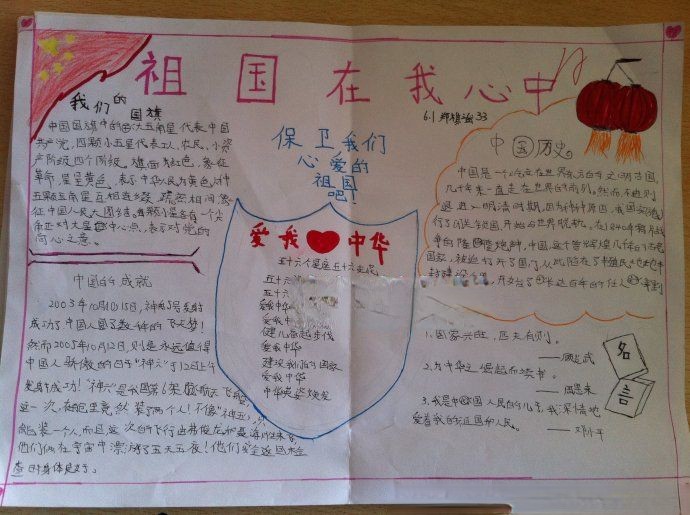 祖国在我心中
6.1 33
我们的
国旗
中国国旗中的大五角星代表中国
共产党,四颗小五星代表工人、农民、小资
产阶级四个阶级,旗面为红色,象征
革命,星呈黄色,表示中华人民为黄色人种
五颗五角星互相连缀、疏密相间,象
征中国人民大团结。每颗小星各有一个尖
角正对大星中心点,表示对党的
向心之意。
中国的成就
2003年10月15日,神舟5号发射
成功了,中国人圆了数千年的飞天梦!
然而2005年10月12日,则是永远值得
中国人骄傲的日子“神六”于12日上午
发射成功!“神六”是我国第6架航天飞
这一次,在舱里竟然装了两个人!不像“神五”,只
能装一个人,而且这次的飞行由费俊龙和聂海胜来
他们俩在宇宙中漂游了五天五夜!他们安全返回,检
查时身体良好。
保卫我们
心爱的
祖国
吧!
爱我中华
五十六个星座五十六
五十六
五十
爱我中华
爱我
健儿奋起步伐
爱我中华
建设我们的国家
爱我中华
中华英姿焕发
中国历史
中国是一个屹立在世界东方的文明古国,
几千年来一直走在世界的前列。然而,不进则
退,进入明清时期,因为种种原因,我国实
行了闭关锁国,开始与世界脱轨,在1840年鸦片战
争的隆隆炮声中,中国,这个曾辉煌几千年的古老
国家,被迫打开了国门,从此陷在了半殖民地半
封建
1、国家兴旺,匹夫有则。
——顾炎武
2、为中华之崛起而读书。
——周恩来
3、我是中国人民的儿子,我深情地
爱着我的祖国和人民。
——邓小平
名
言